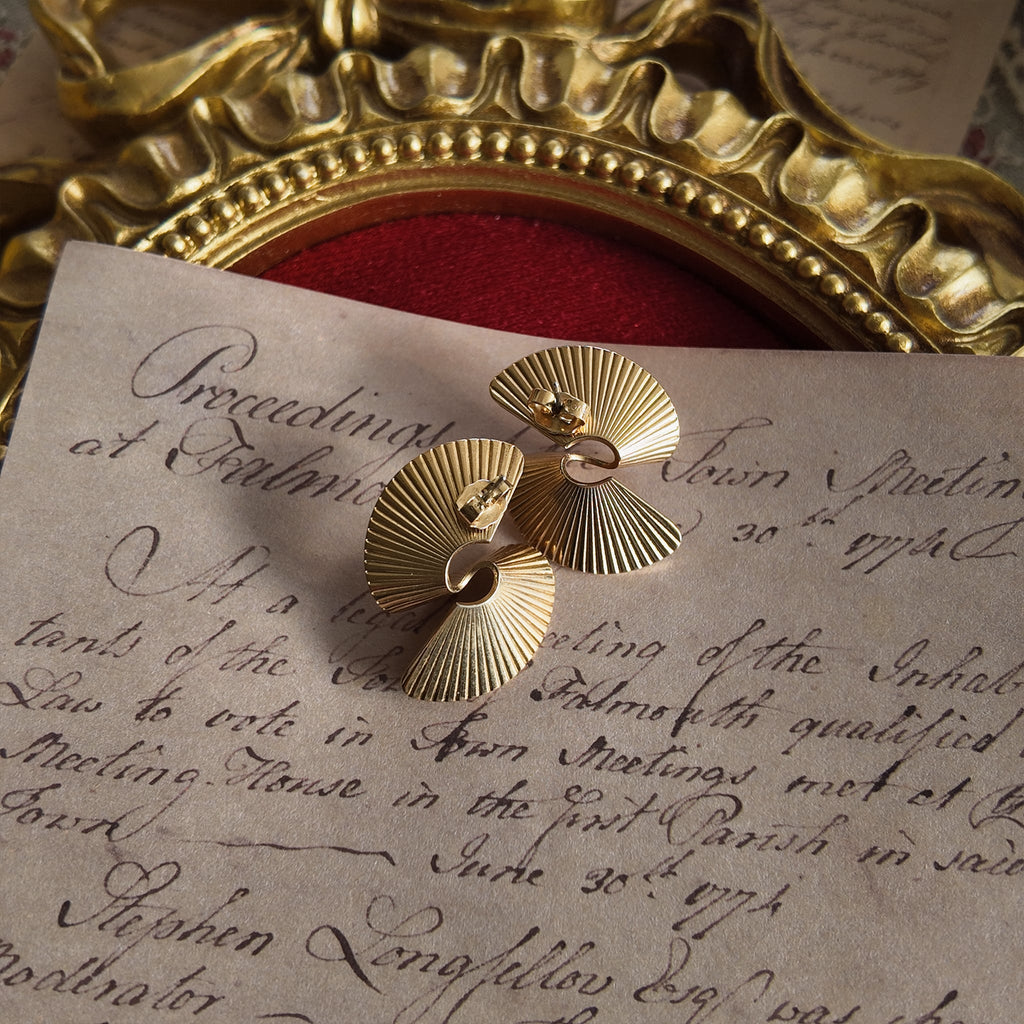 Proceedings Town Meeting
at Falmo 30th 1774
At a legal eeting of the Inhab
tants of the Falmouth qualified
Law to vote in Town Meetings met at
Meeting-House in the first Parish in said
Town June 30th 1774
Stephen Longfellow Esqr was cho
Moderator